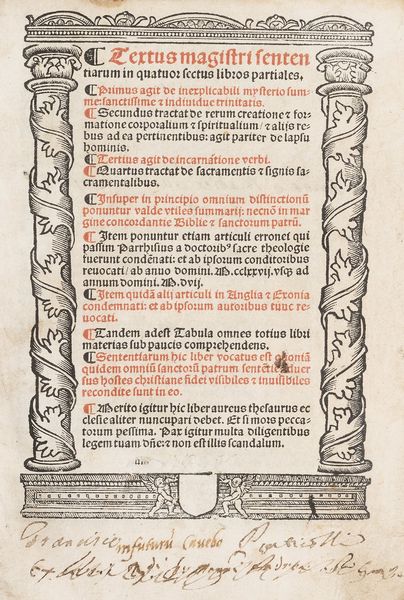 ¶ Textus magistri senten
tiarum in quatuor sectus libros partiales.
¶ Primus agit de inexplicabili mysterio sum-
me: sanctissime ⁊ indiuidue trinitatis.
¶ Secundus tractat de rerum creatione ⁊ for-
matione corporalium ⁊ spiritualium / ⁊ alijs re-
bus ad ea pertinentibus: agit pariter de lapsu
hominis.
¶ Tertius agit de incarnatione verbi.
¶ Quartus tractat de sacramentis ⁊ signis sa-
cramentalibus.
¶ Insuper in principio omnium distinctionū
ponuntur valde vtiles summarij: necnō in mar
gine concordantie Biblie ⁊ sanctorum patrū.
¶ Item ponuntur etiam articuli erronei qui
passim Parrhisius a doctoribꝰ sacre theologie
fuerunt condēnati: et ab ipsorum conditoribus
reuocati / ab anno domini. M.cclxxvij. vsqꝫ ad
annum domini. M.dvij.
¶ Item quidā alij articuli in Anglia ⁊ Exonia
condemnati: et ab ipsorum autoribus tūuc re-
uocati.
¶ Tandem adest Tabula omnes totius libri
materias sub paucis comprehendens.
¶ Sententiarum hic liber vocatus est
quidem omniū sanctorū patrum aduer
sus hostes christiane fidei visibiles ⁊ inuisibiles
recondite sunt in eo.
¶ Merito igitur hic liber aureus thesaurus ec
clesie aliter nuncupari debet. Et si mors pecca-
torum pessima. Pax igitur multa diligentibus
legem tuam dñe: ⁊ non est illis scandalum.
in futurū Cauebo